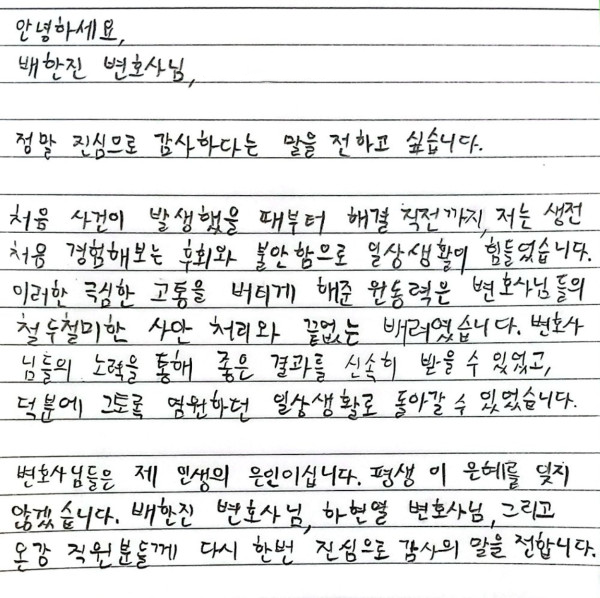 안녕하세요,
배한진 변호사님,
정말 진심으로 감사하다는 말을 전하고 싶습니다.
처음 사건이 발생했을 때부터 해결 직전까지, 저는 생전
처음 경험해보는 후회와 불안함으로 일상생활이 힘들었습니다.
이러한 극심한 고통을 버티게 해준 원동력은 변호사님들의
철두철미한 사안 처리와 끝없는 배려였습니다. 변호사
님들의 노력을 통해 좋은 결과를 신속히 받을 수 있었고,
덕분에 그토록 염원하던 일상생활로 돌아갈 수 있었습니다.
변호사님들은 제 인생의 은인이십니다. 평생 이 은혜를 잊지
않겠습니다. 배한진 변호사님, 하현열 변호사님, 그리고
온강 직원분들께 다시 한번 진심으로 감사의 말을 전합니다.